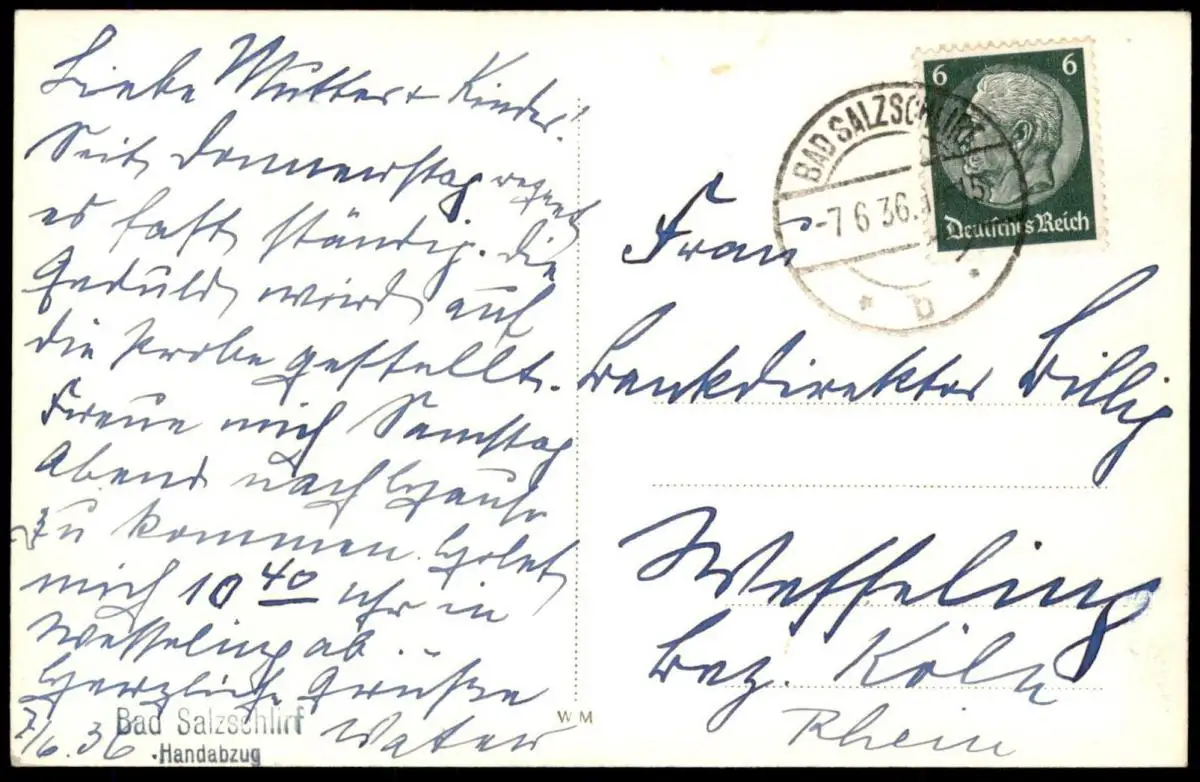 Liebe Mutter + Kinder!
Seit Donnerstag regnet
es fast ständig. Die
Geduld wird auf
die Probe gestellt.
Freue mich Samstag
Abend nach Hause
zu kommen. Holet
mich 10 40 Uhr in
Wesseling ab.
Herzliche Grüße
Vater
7/6.36
Bad Salzschlirf
Handabzug
WM
BAD SALZSCHLIRF
-7 6 36.
b
6 6
Deutsches Reich
Frau
Bankdirektor Billig
Wesseling
Bez. Köln
Rhein